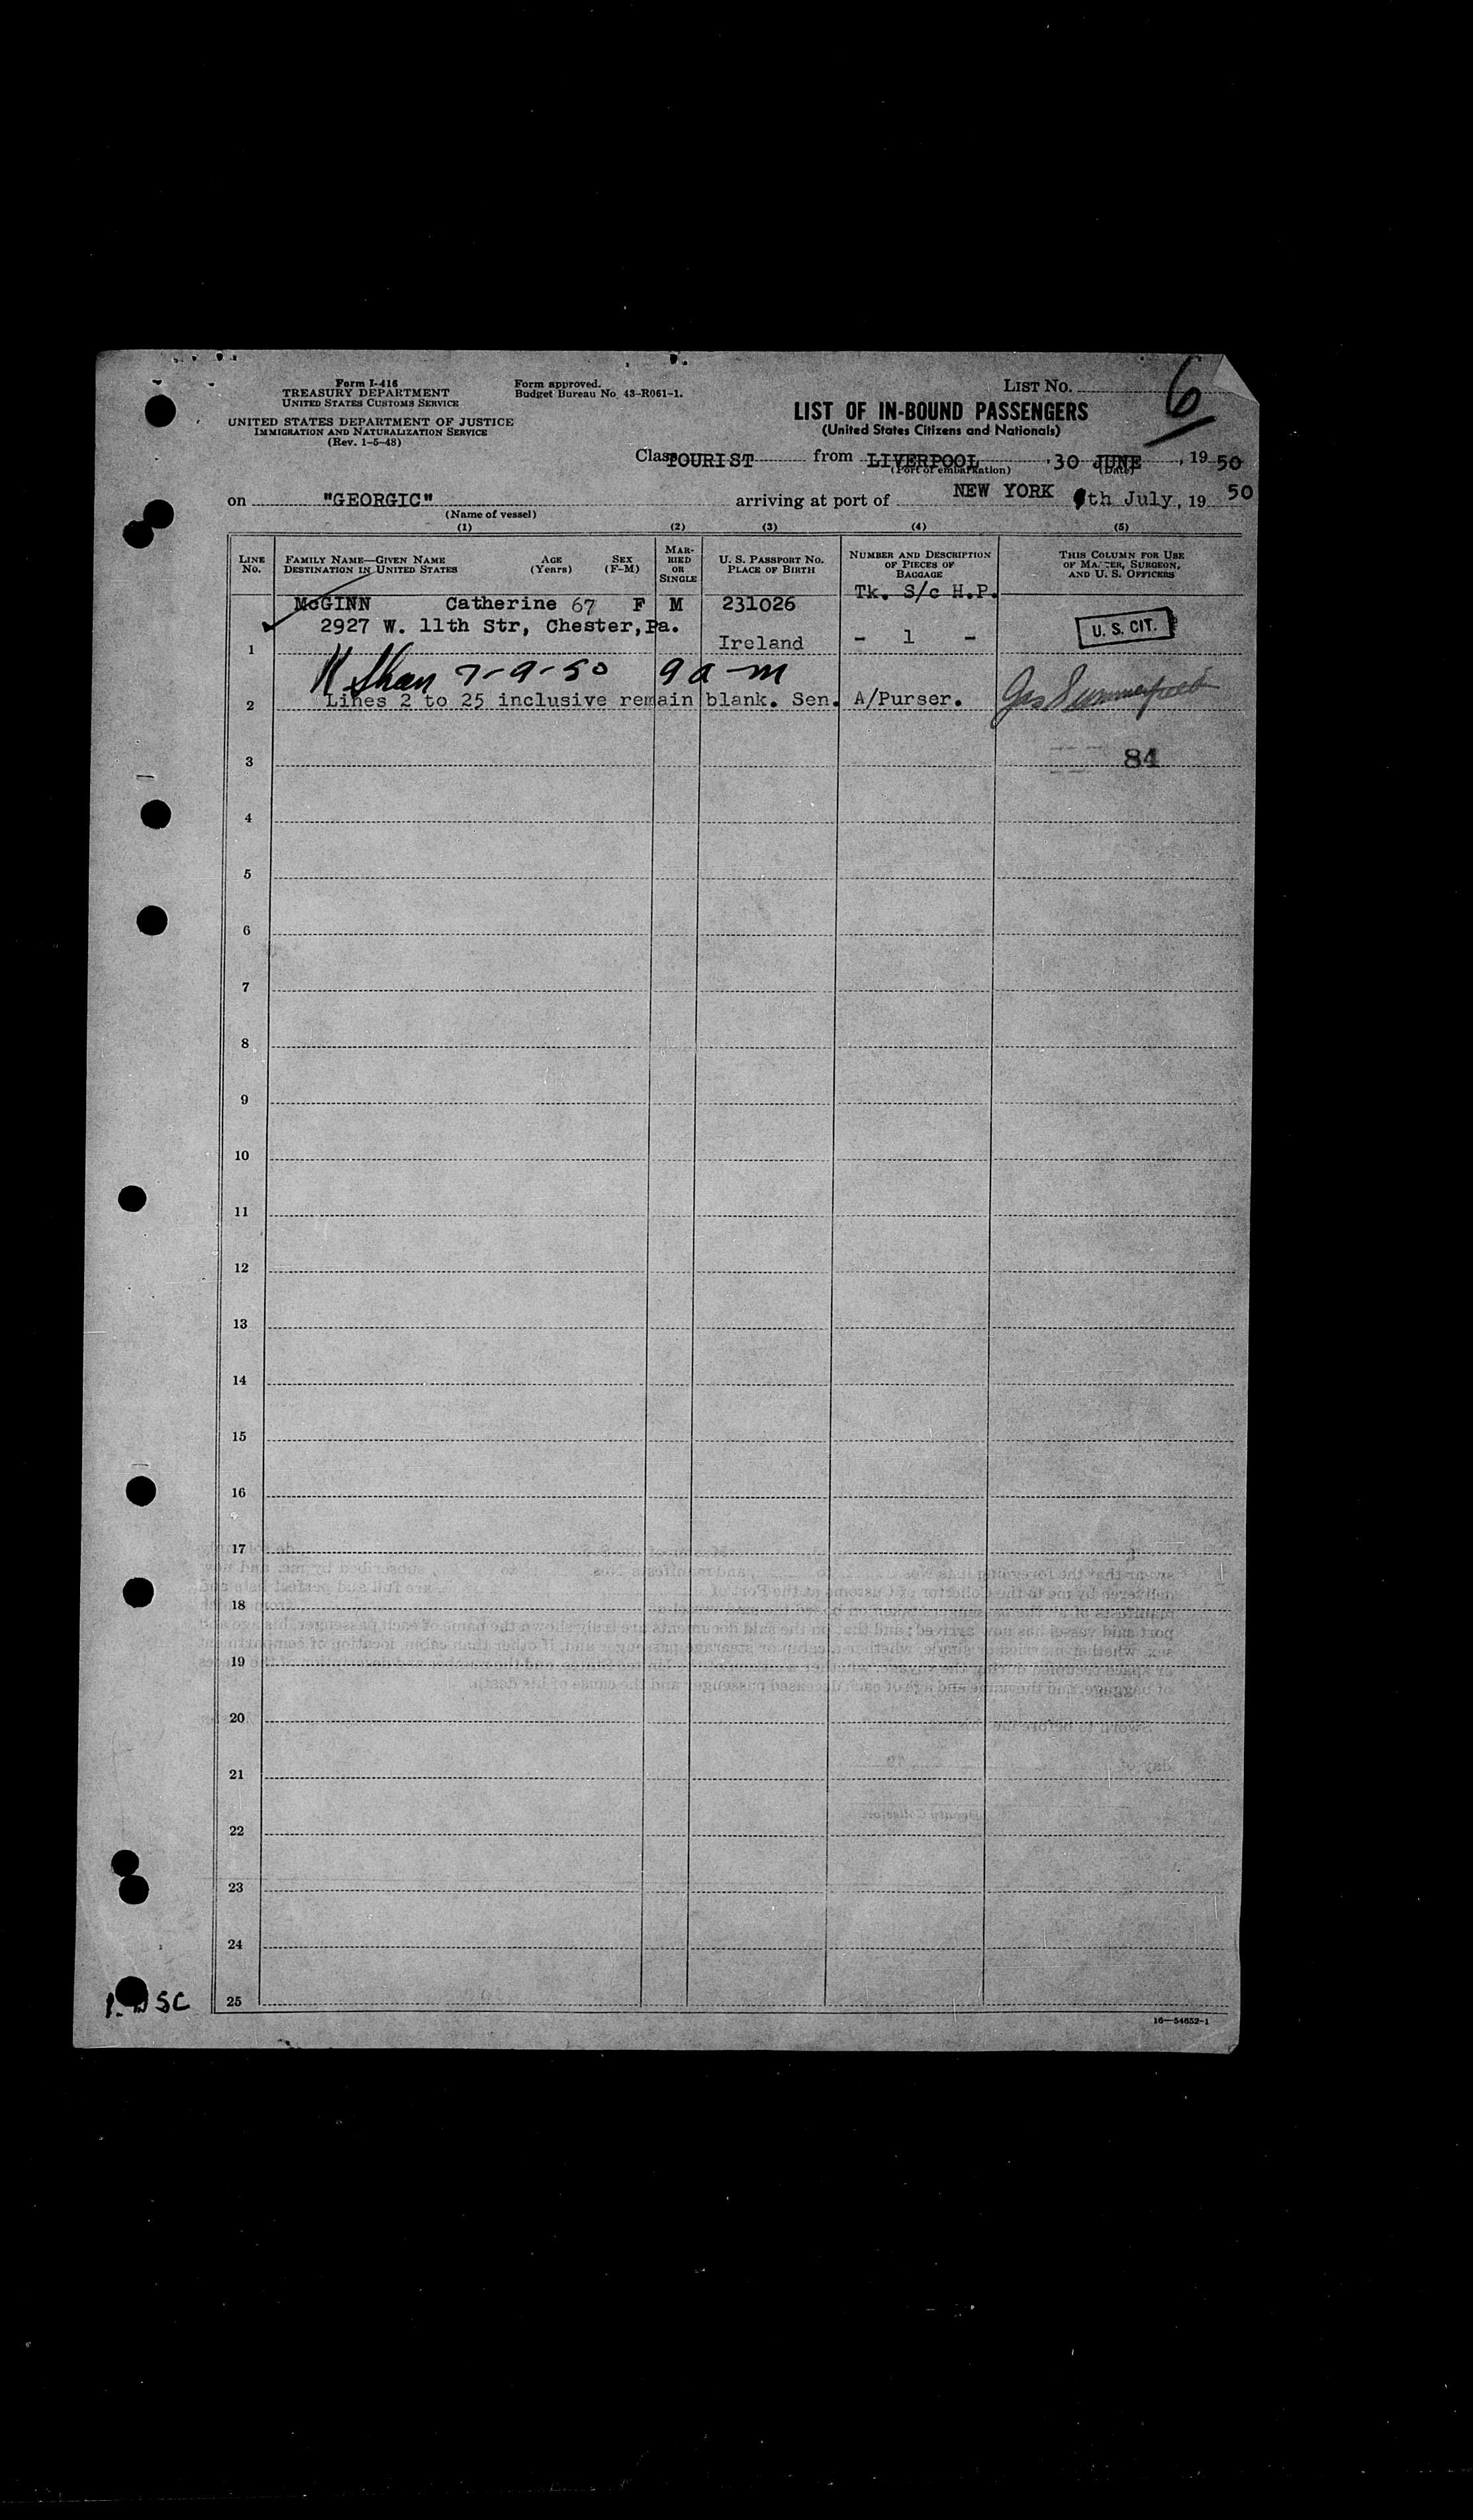 Form I-416
TREASURY DEPARTMENT
UNITED STATES CUSTOMS SERVICE
UNITED STATES DEPARTMENT OF JUSTICE
IMMIGRATION AND NATURALIZATION SERVICE
(Rev. 1-5-48)
Form approved.
Budget Bureau No. 43-R061-1.
LIST NO. 6
LIST OF IN-BOUND PASSENGERS
(United States Citizens and Nationals)
Class TOURIST from LIVERPOOL, 30 JUNE, 1950
(Port of embarkation) (Date)
on "GEORGIC" arriving at port of NEW YORK 9th July, 1950
(Name of vessel)
(1) (2) (3) (4) (5)
LINE NO.
FAMILY NAME—GIVEN NAME AGE (Years) SEX (F-M)
DESTINATION IN UNITED STATES
MARRIED OR SINGLE
U. S. PASSPORT NO.
PLACE OF BIRTH
NUMBER AND DESCRIPTION OF PIECES OF BAGGAGE
THIS COLUMN FOR USE OF MASTER, SURGEON, AND U. S. OFFICERS
Tk. S/c H.P.
McGINN Catherine 67 F M 231026
2927 W. 11th Str, Chester, Pa.
1 Ireland - 1 - U. S. CIT.
7-9-50 9 a m
2 Lines 2 to 25 inclusive remain blank. Sen. A/Purser.
3 84
4
5
6
7
8
9
10
11
12
13
14
15
16
17
18
19
20
21
22
23
24
25
16—54652-1